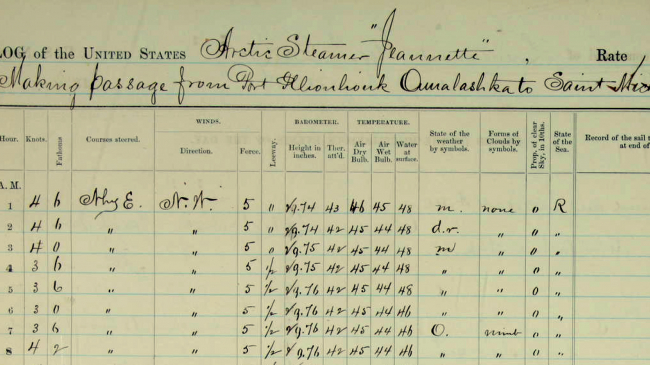 LOG of the UNITED STATES Arctic Steamer "Jeannette", Rate
Making passage from Port Illiouliouk Ounalashka to Saint Mic
Hour. Knots. Fathoms Courses steered. WINDS. Direction. Force. Leeway. BAROMETER. Height in inches. Ther. att'd. TEMPERATURE. Air Dry Bulb. Air Wet Bulb. Water at surface. State of the weather by symbols. Forms of Clouds by symbols. Prop. of clear Sky, in 10ths. State of the Sea. Record of the sail t at end of
A. M.
1 4 6 N.W. 5 " 29.74 43 46 45 48 m. none 0 R
2 4 6 " " 5 " 29.74 42 45 44 48 d.r. " 0 "
3 4 0 " " 5 " 29.75 42 45 44 48 m " 0 "
4 3 6 " " 5 1/2 29.75 42 45 44 48 " " 0 "
5 3 6 " " 5 1/2 29.76 42 45 44 48 " " 0 "
6 3 0 " " 5 1/2 29.76 42 45 44 46 " " 0 "
7 3 6 " " 5 1/2 29.76 42 45 44 46 O. 0 "
8 4 2 " " 5 1/2 29.76 42 45 44 46 " " 0 "